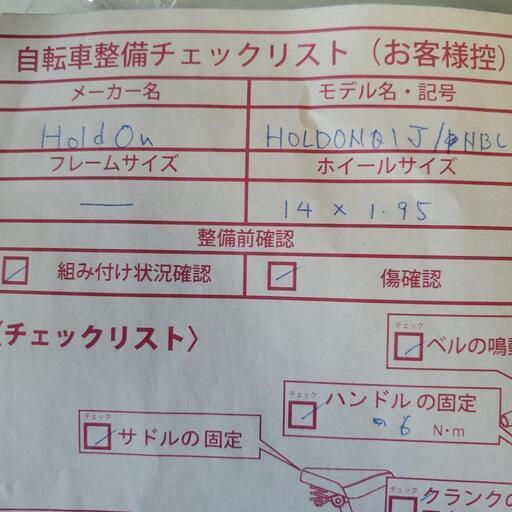 自転車整備チェックリスト（お客様控）
メーカー名 モデル名・記号
Hold On HOLDONQ1J/
フレームサイズ ホイールサイズ
— 14 × 1.95
整備前確認
組み付け状況確認 傷確認
〈チェックリスト〉
チェック
ベルの鳴動
チェック
ハンドルの固定
6 N・m
チェック
サドルの固定
チェック
クランクの